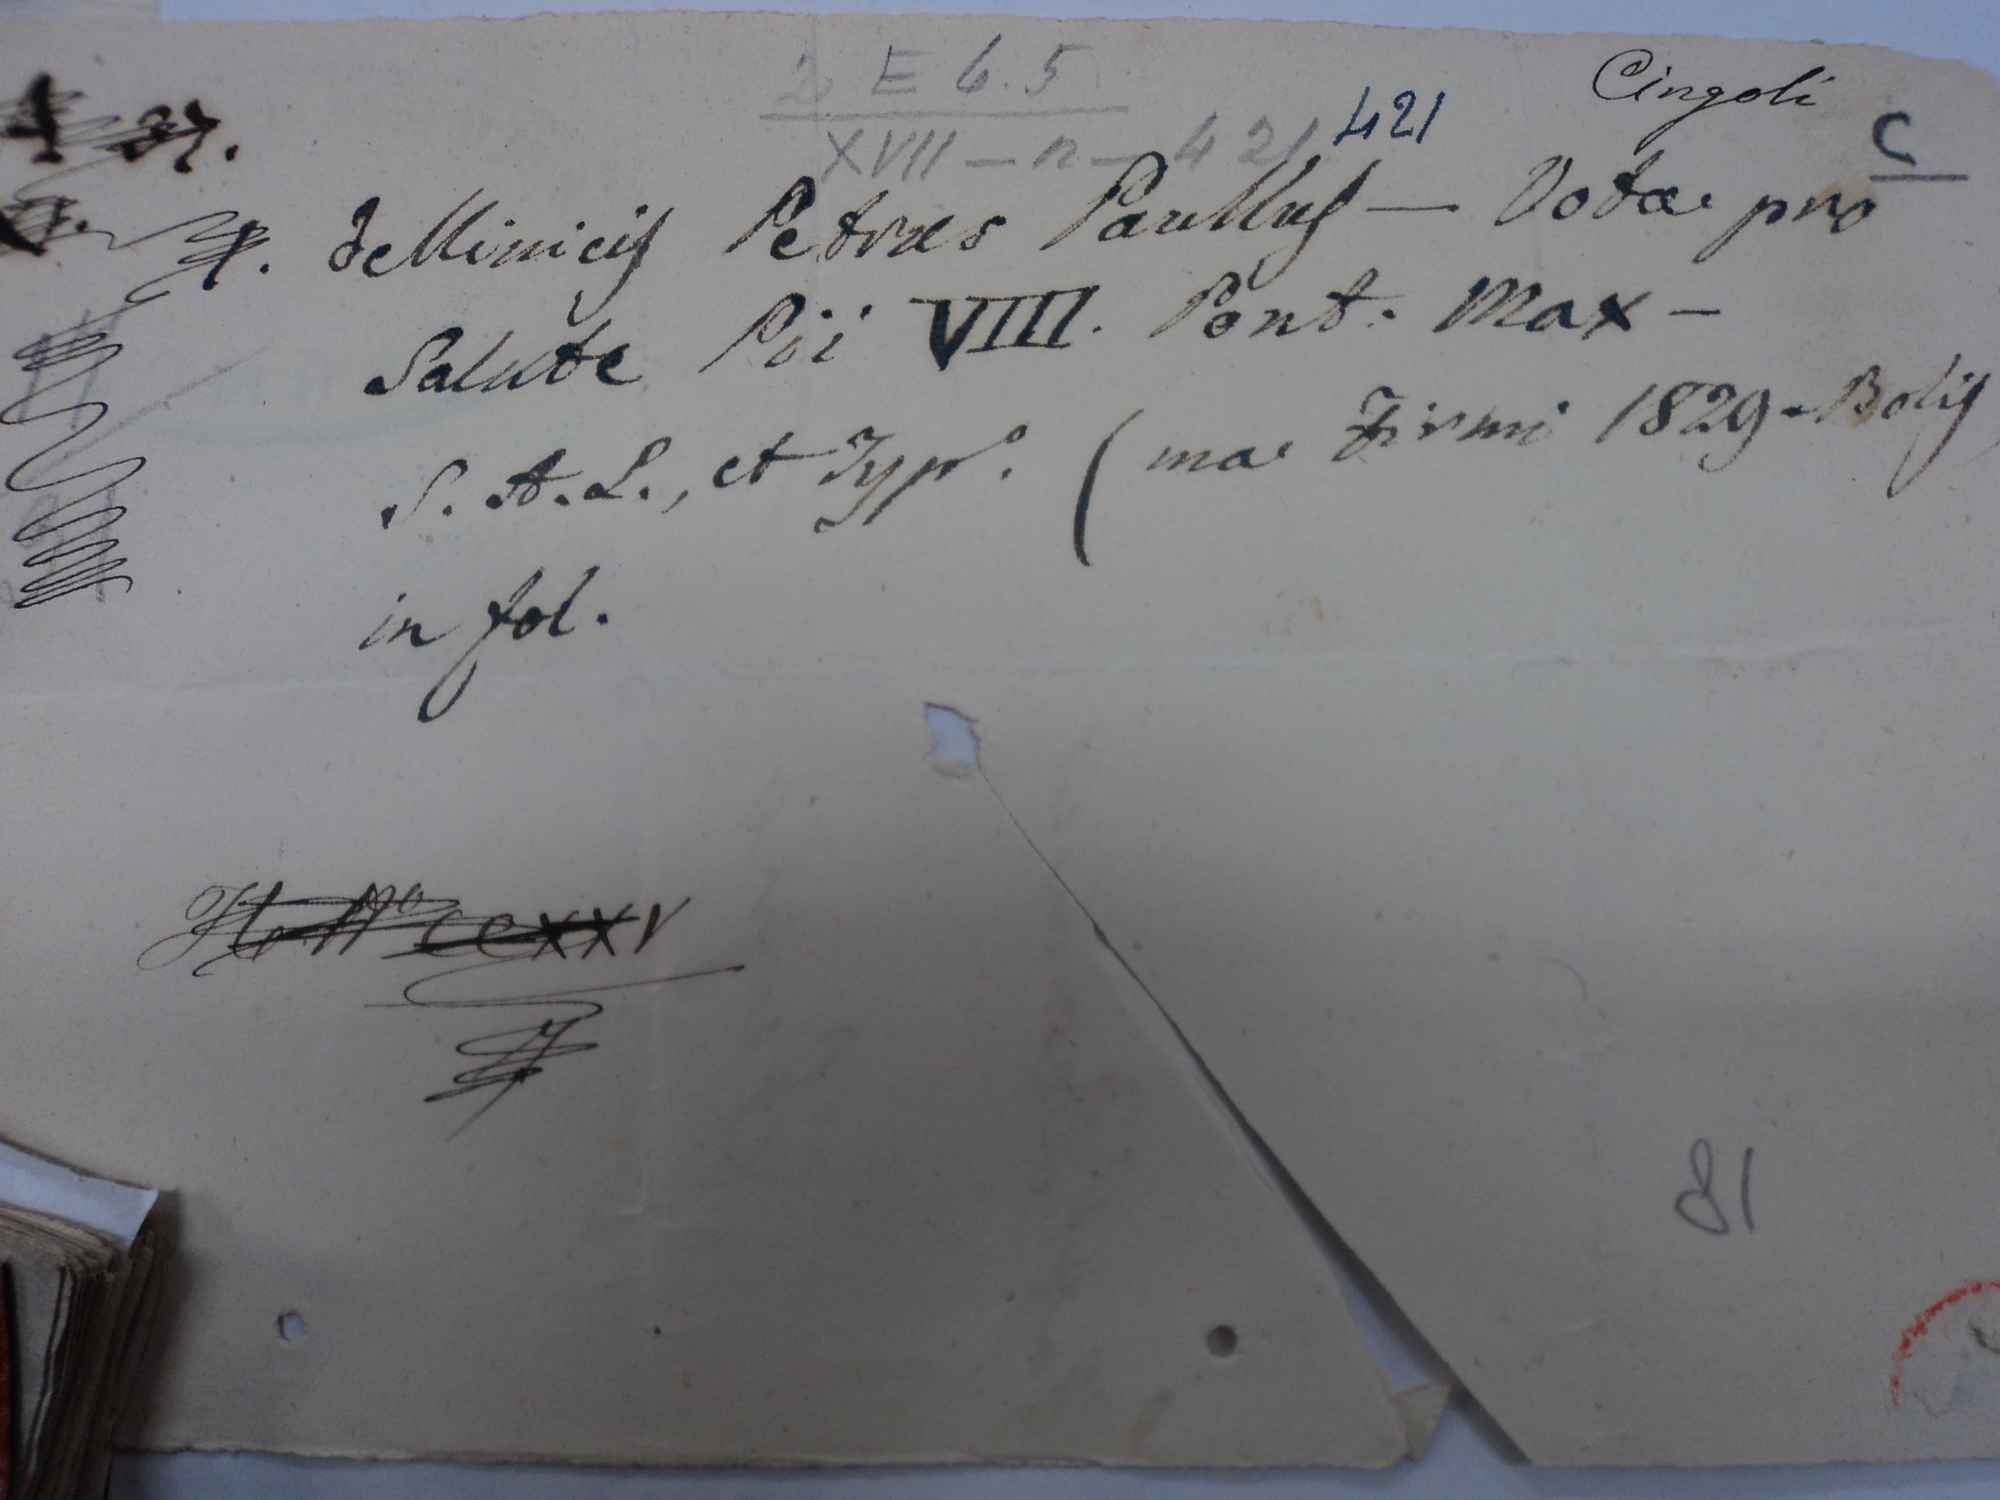 2 E 6.5
Cingoli
XVII - n - 421
421
C
37.
De Minicis Petrus Paullus — Vota pro
Salute Pii VIII. Pont. Max -
S. A. L., et Typ.° (ma Firmi 1829 - Bolis
in fol.
N° CCXXV
81